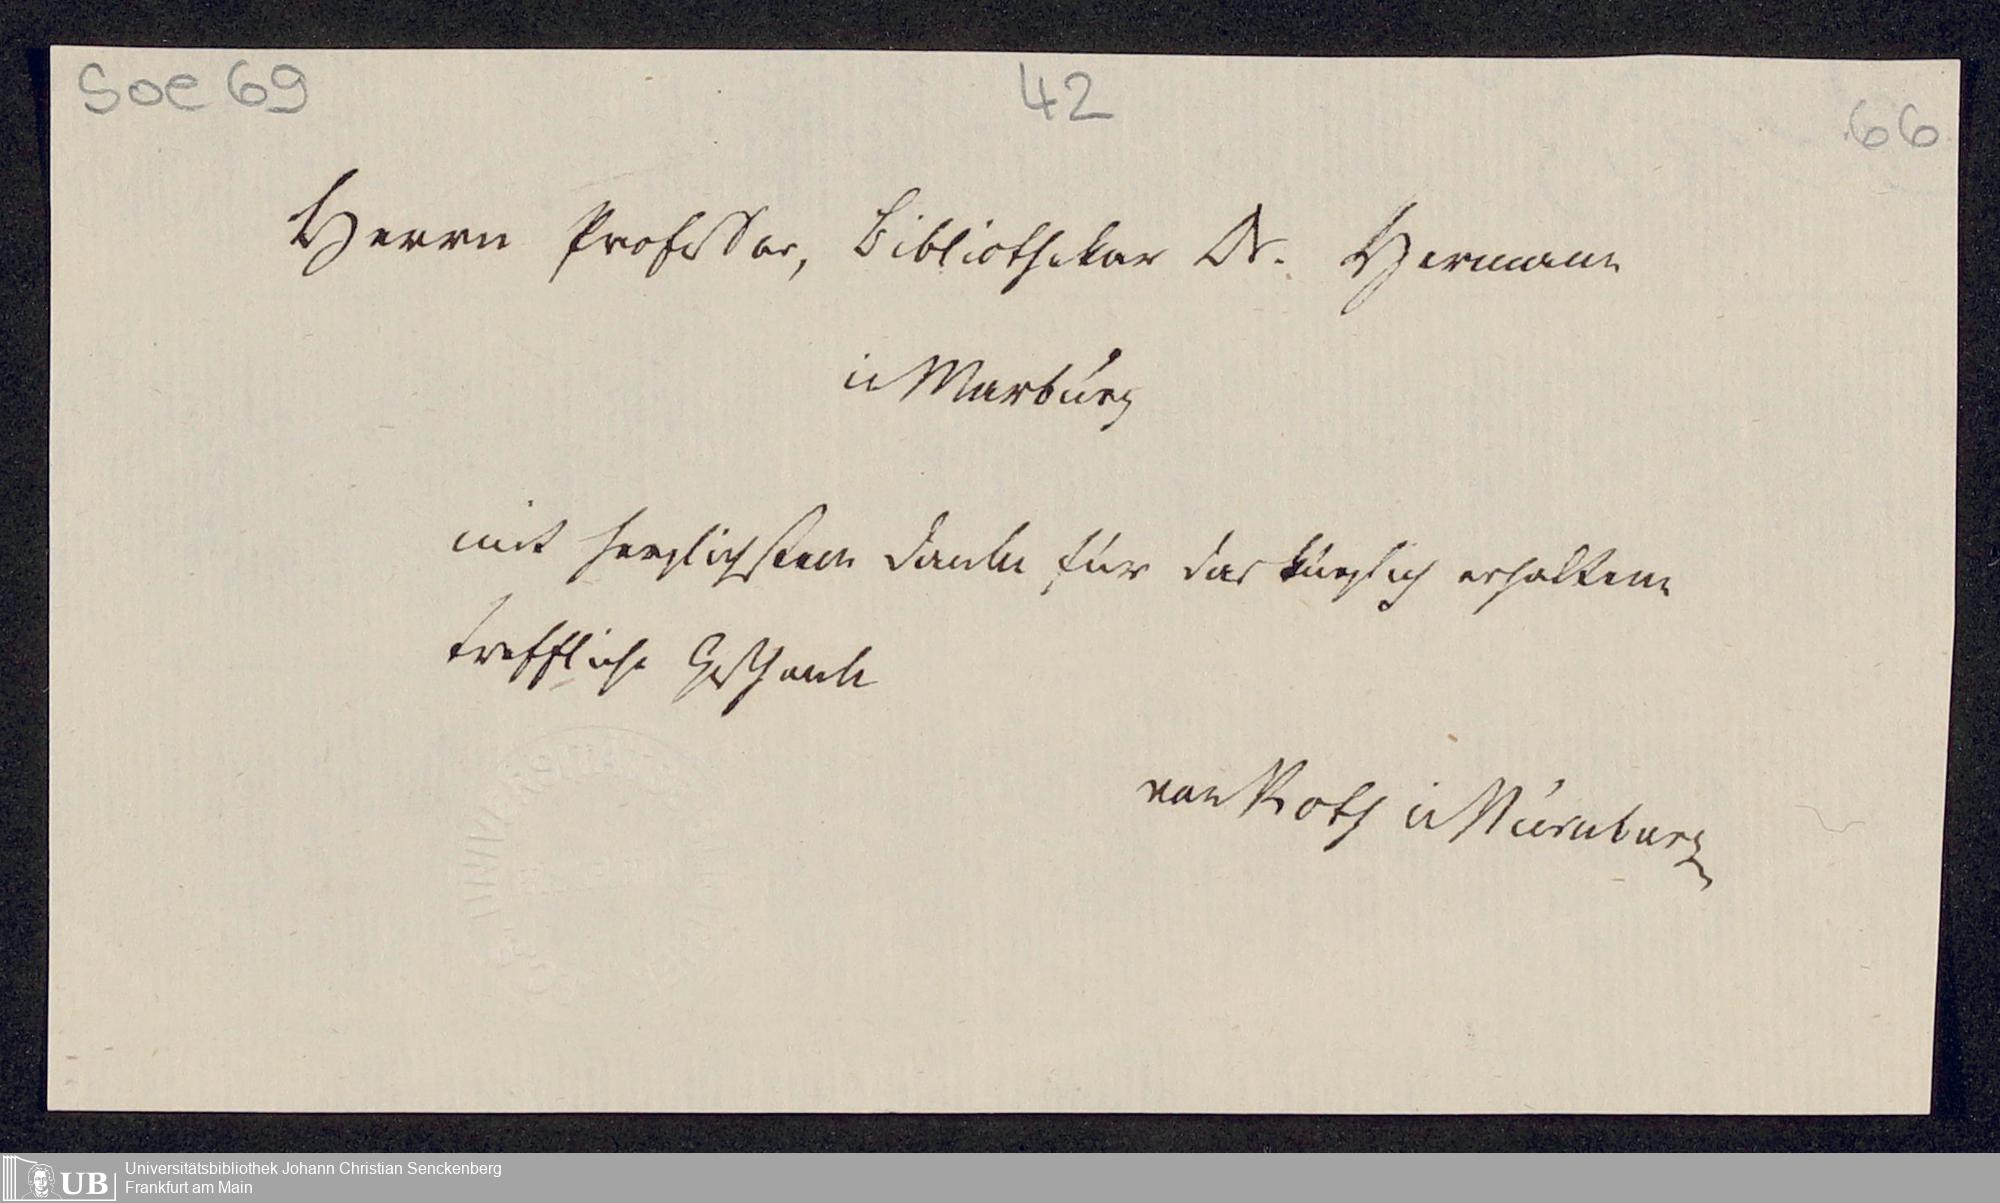 Soe 69
42
66
Herrn Professor, Bibliothekar Dr. Hermann
in Marburg
mit herzlichstem Danke für das kürzlich erhaltene
treffliche Geschenk
von Roth in Nürnberg
UB
Universitätsbibliothek Johann Christian Senckenberg
Frankfurt am Main